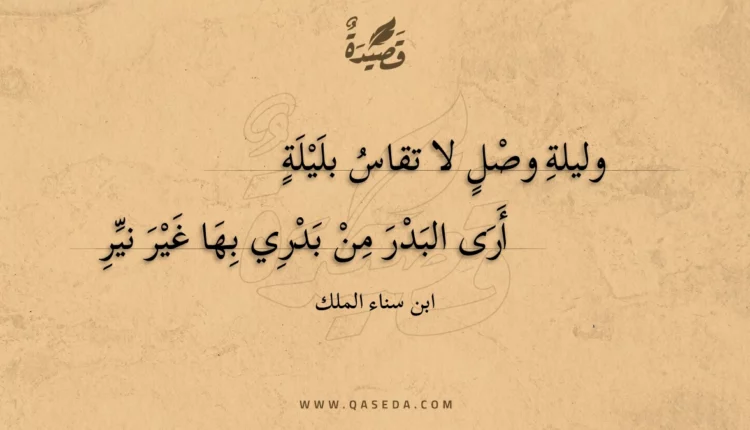 قَصِيْدَةٌ
وليلةِ وصْلٍ لا تقاسُ بلَيْلَةٍ
أَرَى البَدْرَ مِنْ بَدْرِي بِهَا غَيْرَ نيِّرِ
ابن سناء الملك
WWW.QASEDA.COM